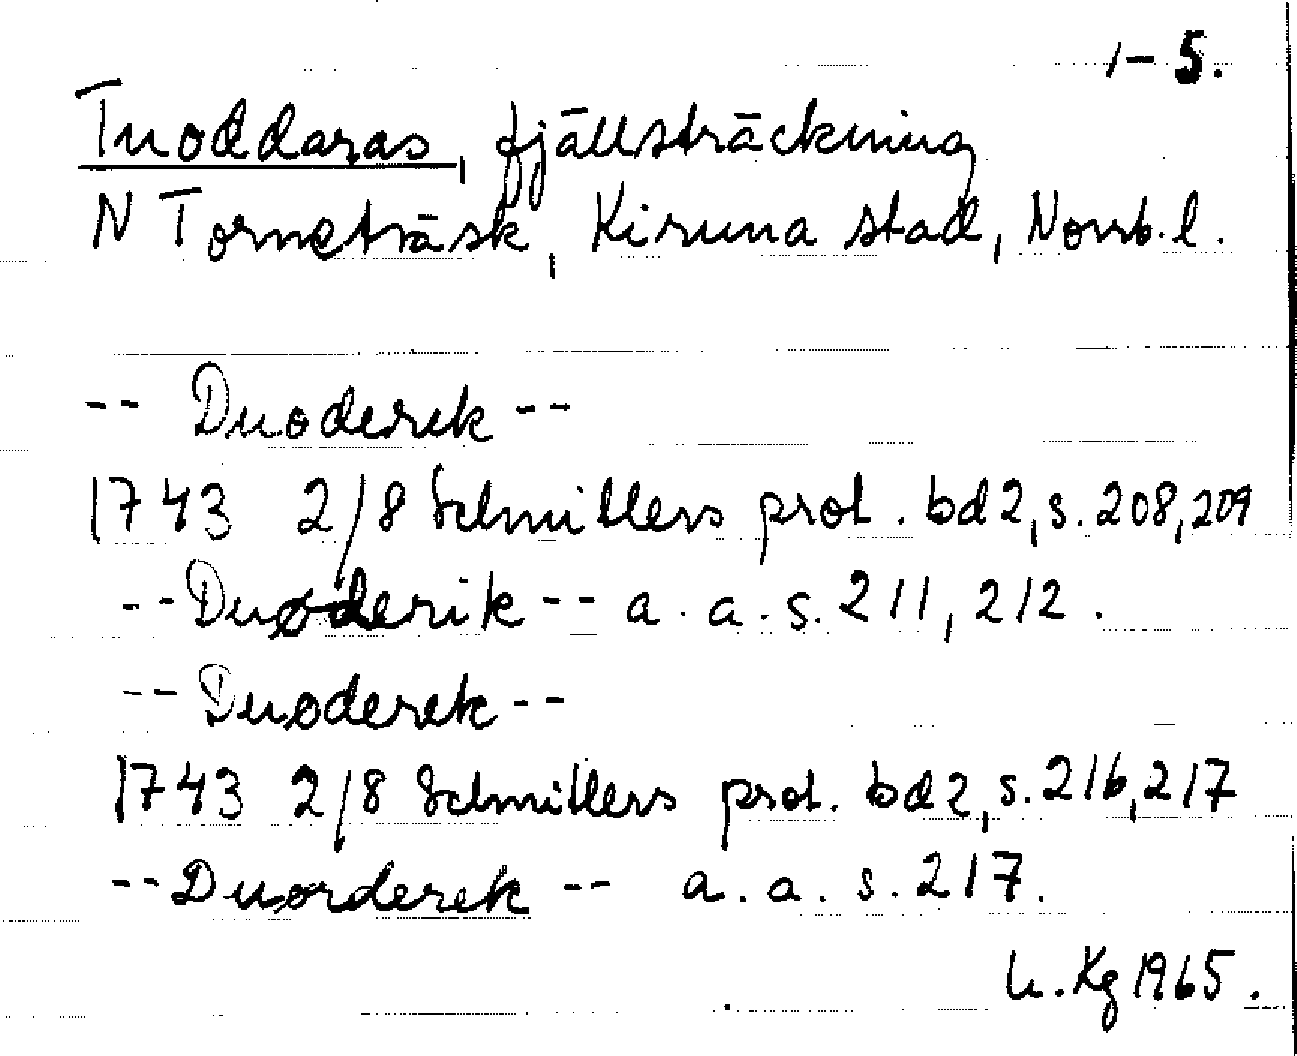 1-5.
Tuoddaras, fjällsträckning
N Torneträsk, Kiruna stad, Norrb. l.
-- Duoderek --
1743 2/8 Schnitlers prot. bd 2, s. 208, 209
-- Duøderik -- a. a. s. 211, 212.
-- Duøderek --
1743 2/8 Schnitlers prot. bd 2, s. 216, 217
-- Duorderek -- a. a. s. 217.
Kg 1965.